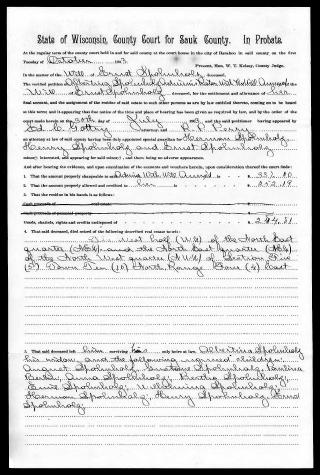 State of Wisconsin, County Court for Sauk County. In Probate.
At the regular term of the county court held in and for said county at the court house in the city of Baraboo in said county on the first
Tuesday of October 1903
Present, Hon. County Judge.
In the matter of the Will of Ernst Spolnholz deceased.
Will of Ernst Spolnholz deceased, for the settlement and allowance of her
final account, and the assignment of the residue of said estate to such other persons as are by law entitled thereto, coming on to be heard
at this term and it appearing that the notice of the time and place of hearing has been given as required by law, and by the order of the
court made herein on the 30th day of July 1903 and the said petitioner having appeared by
R. P. Perry
an attorney at law of said county having been duly appointed special guardian for Herman Spolnholz
Henry Spolnholz and Ernst Spolnholz
minors, interested, and appearing for said minors; and there being no adverse appearance.
And after hearing the evidence, and upon examination of the accounts and vouchers herein, upon consideration thereof the court finds:
1. That the amount properly chargeable to
2. That the amount properly allowed and credited to her is
3. That the residue in his hands is as follows:
Cash proceeds of
Cash proceeds of personal property
Goods, chattels, rights and credits undisposed of $ 294.51
4. That said deceased, died seized of the following described real estate:
The West half (W½) of the North East
quarter and the North East quarter
of the North West quarter of Section Five
(5) Town Ten (10) North Range Four (4) East
5. That said deceased left him surviving his only heirs at law, Albertina Spolnholz
his widow and the following named children
August Spolnholz, Gustave Spolnholz, Paulina
Anna Spolnholz, Bertha Spolnholz,
Emil Spolnholz, Wilhelmina Spolnholz,
Herman Spolnholz, Henry Spolnholz, Ernst
Spolnholz